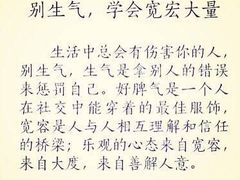 别生气，学会宽宏大量
生活中总会有伤害你的人，
别生气，生气是拿别人的错误
来惩罚自己。好脾气是一个人
在社交中能穿着的最佳服饰，
宽容是人与人相互理解和信任
的桥梁；乐观的心态来自宽容，
来自大度，来自善解人意。